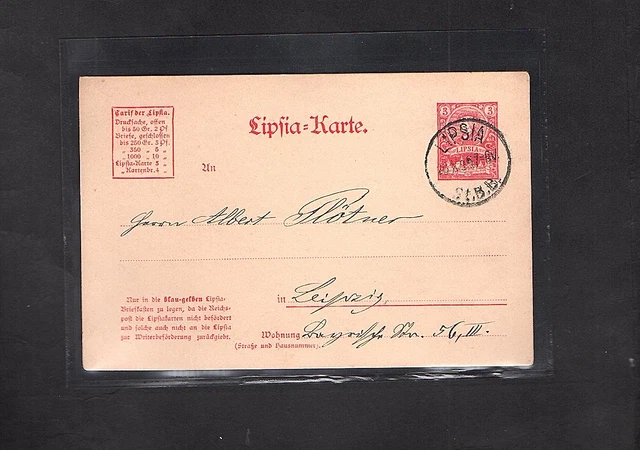 Tarif der Lipsia.
Drucksache, offen
bis 50 Gr. 2 Pf.
Briefe, geschlossen
bis 250 Gr. 3 Pf.
„ 350 „ 5 „
„ 1000 „ 10 „
Lipsia-Karte 3 „
„ Kartenbr. 4 „
Lipsia=Karte.
3 3
LIPSIA
LIPSIA
St.B.B.
An
Herrn Albert Flötner
in Leipzig,
Wohnung Bayrische Str. 56, III.
(Straße und Hausnummer).
Nur in die blau-gelben Lipsia-
Briefkasten zu legen, da die Reichs-
post die Lipsiakarten nicht befördert
und solche auch nicht an die Lipsia
zur Weiterbeförderung zurückgiebt.